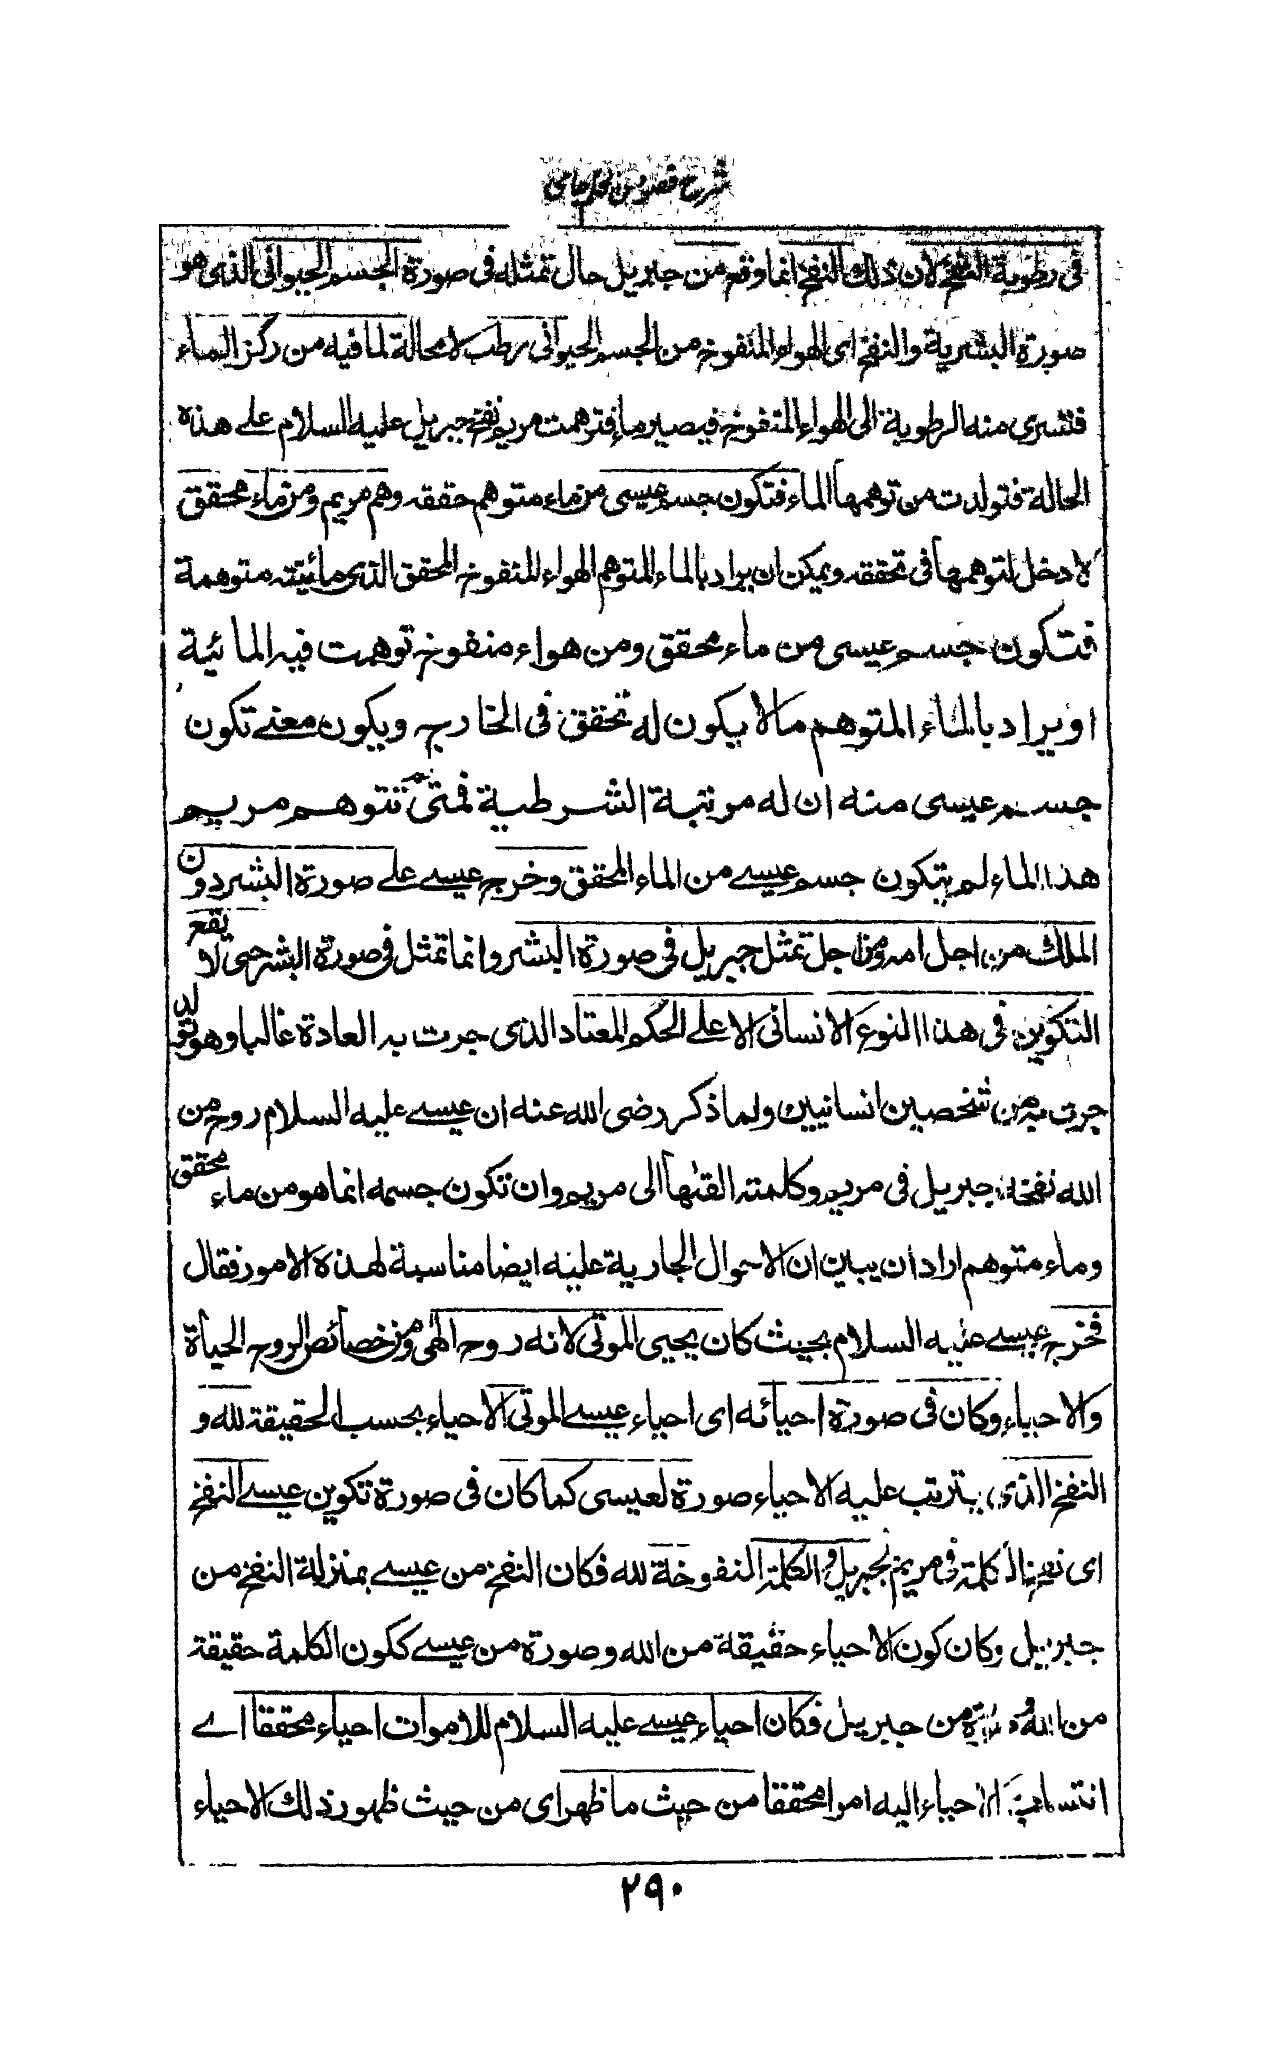 شرح فصوص الحكم جامی
فی رطوبة النفخ لان ذلك النفخ انما وقع من جبريل حال تمثله فی صورة الجسم الحيوانی الذی هو
صورة البشرية والنفخ ای الهواء المنفوخ من الجسم الحيوانی رطب لا محالة لما فيه من ركز الماء
فتسری منه الرطوبة الی الهواء المنفوخ فيصير ماء فتوهمت مريم نفخ جبريل عليه السلام علے هذه
الحالة فتولدت من توهمها الماء فتكون جسم عيسی من ماء متوهم حققه وهم مريم ومن ماء محقق
لا دخل لتوهمها فی تحققه ويمكن ان يراد بالماء المتوهم الهواء المنفوخ المحقق الذی مائيته متوهمة
فتكون جسم عيسی من ماء محقق ومن هواء منفوخ توهمت فيه المائية
او يراد بالماء المتوهم مالا يكون له تحقق فی الخارج ويكون معنے تكون
جسم عيسی منه ان له مرتبة الشرطية فمتی تتوهم مريم
هذا الماء لم يتكون جسم عيسے من الماء المحقق وخرج عيسے علے صورة البشر دون
الملك من اجل امه ومن اجل تمثل جبريل فی صورة البشر وانما تمثل فی صورة البشر حتی لا يقع
التكوين فی هذا النوع الانسانی الا علے الحكم المعتاد الذی جرت به العادة غالبا وهو تولد
من شخصين انسانيين ولما ذكر رضی الله عنه ان عيسے عليه السلام روح من
الله نفخه جبريل فی مريم وكلمته القٰها الی مريم وان تكون جسمه انما هو من ماء محقق
وماء متوهم اراد ان يبين ان الاحوال الجارية عليه ايضا مناسبة لهذه الامور فقال
فخرج عيسے عليه السلام بحيث كان يحيی الموتی لانه روح الٰهی ومن خصائص الروح الحياة
والاحياء وكان فی صورة احيائه ای احياء عيسے الموتی الاحياء بحسب الحقيقة لله و
النفخ الذی يترتب عليه الاحياء صورة لعيسی كما كان فی صورة تكوين عيسے النفخ
ای كلمته فی مريم لجبريل و الكلمة النفوخة لله فكان النفخ من عيسے بمنزلة النفخ من
جبريل وكان كون الاحياء حقيقة من الله وصورة من عيسے ككون الكلمة حقيقة
من الله و من جبريل فكان احياء عيسے عليه السلام للاموات احياء محققا اے
الاحياء اليه امرا محققا من حيث ما ظهر ای من حيث ظهور ذلك الاحياء
٢٩٠